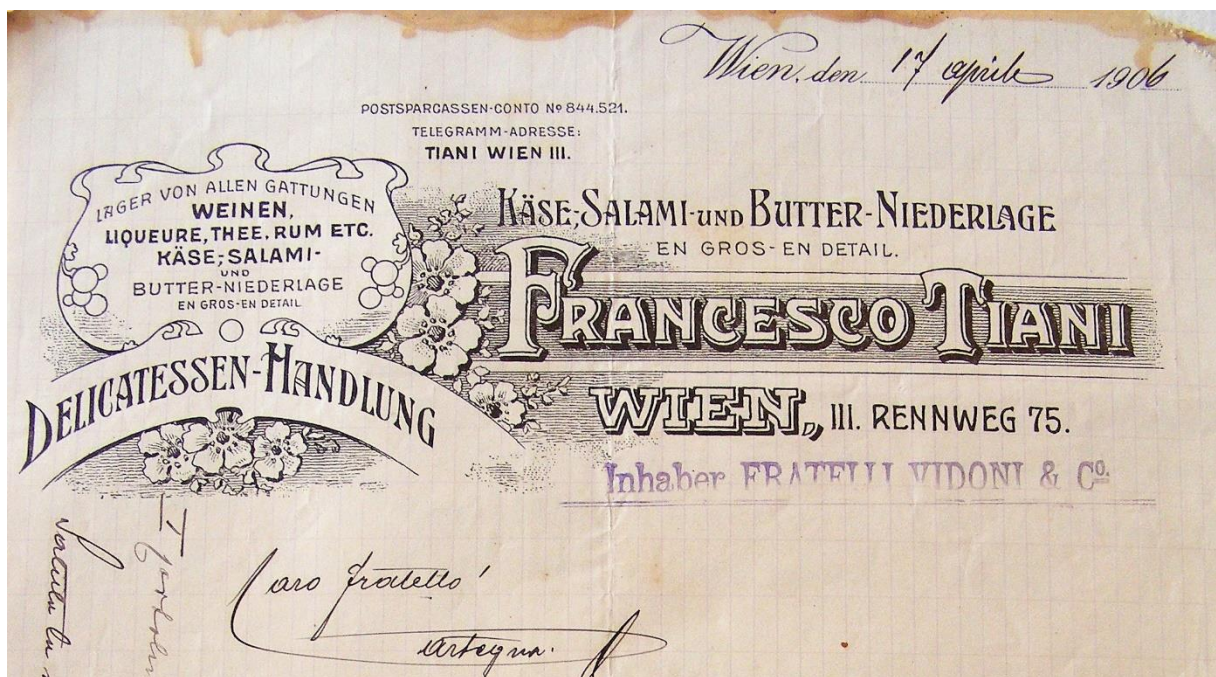 Wien, den 17 aprile 1906
POSTSPARCASSEN-CONTO No 844.521.
TELEGRAMM-ADRESSE:
TIANI WIEN III.
LAGER VON ALLEN GATTUNGEN
WEINEN,
LIQUEURE, THEE, RUM ETC.
KÄSE-, SALAMI-
UND
BUTTER-NIEDERLAGE
EN GROS-EN DETAIL
DELICATESSEN-HANDLUNG
KÄSE-, SALAMI- UND BUTTER-NIEDERLAGE
EN GROS-EN DETAIL.
FRANCESCO TIANI
WIEN, III. RENNWEG 75.
Inhaber FRATELLI VIDONI & Co.
Caro fratello!
Artegna.